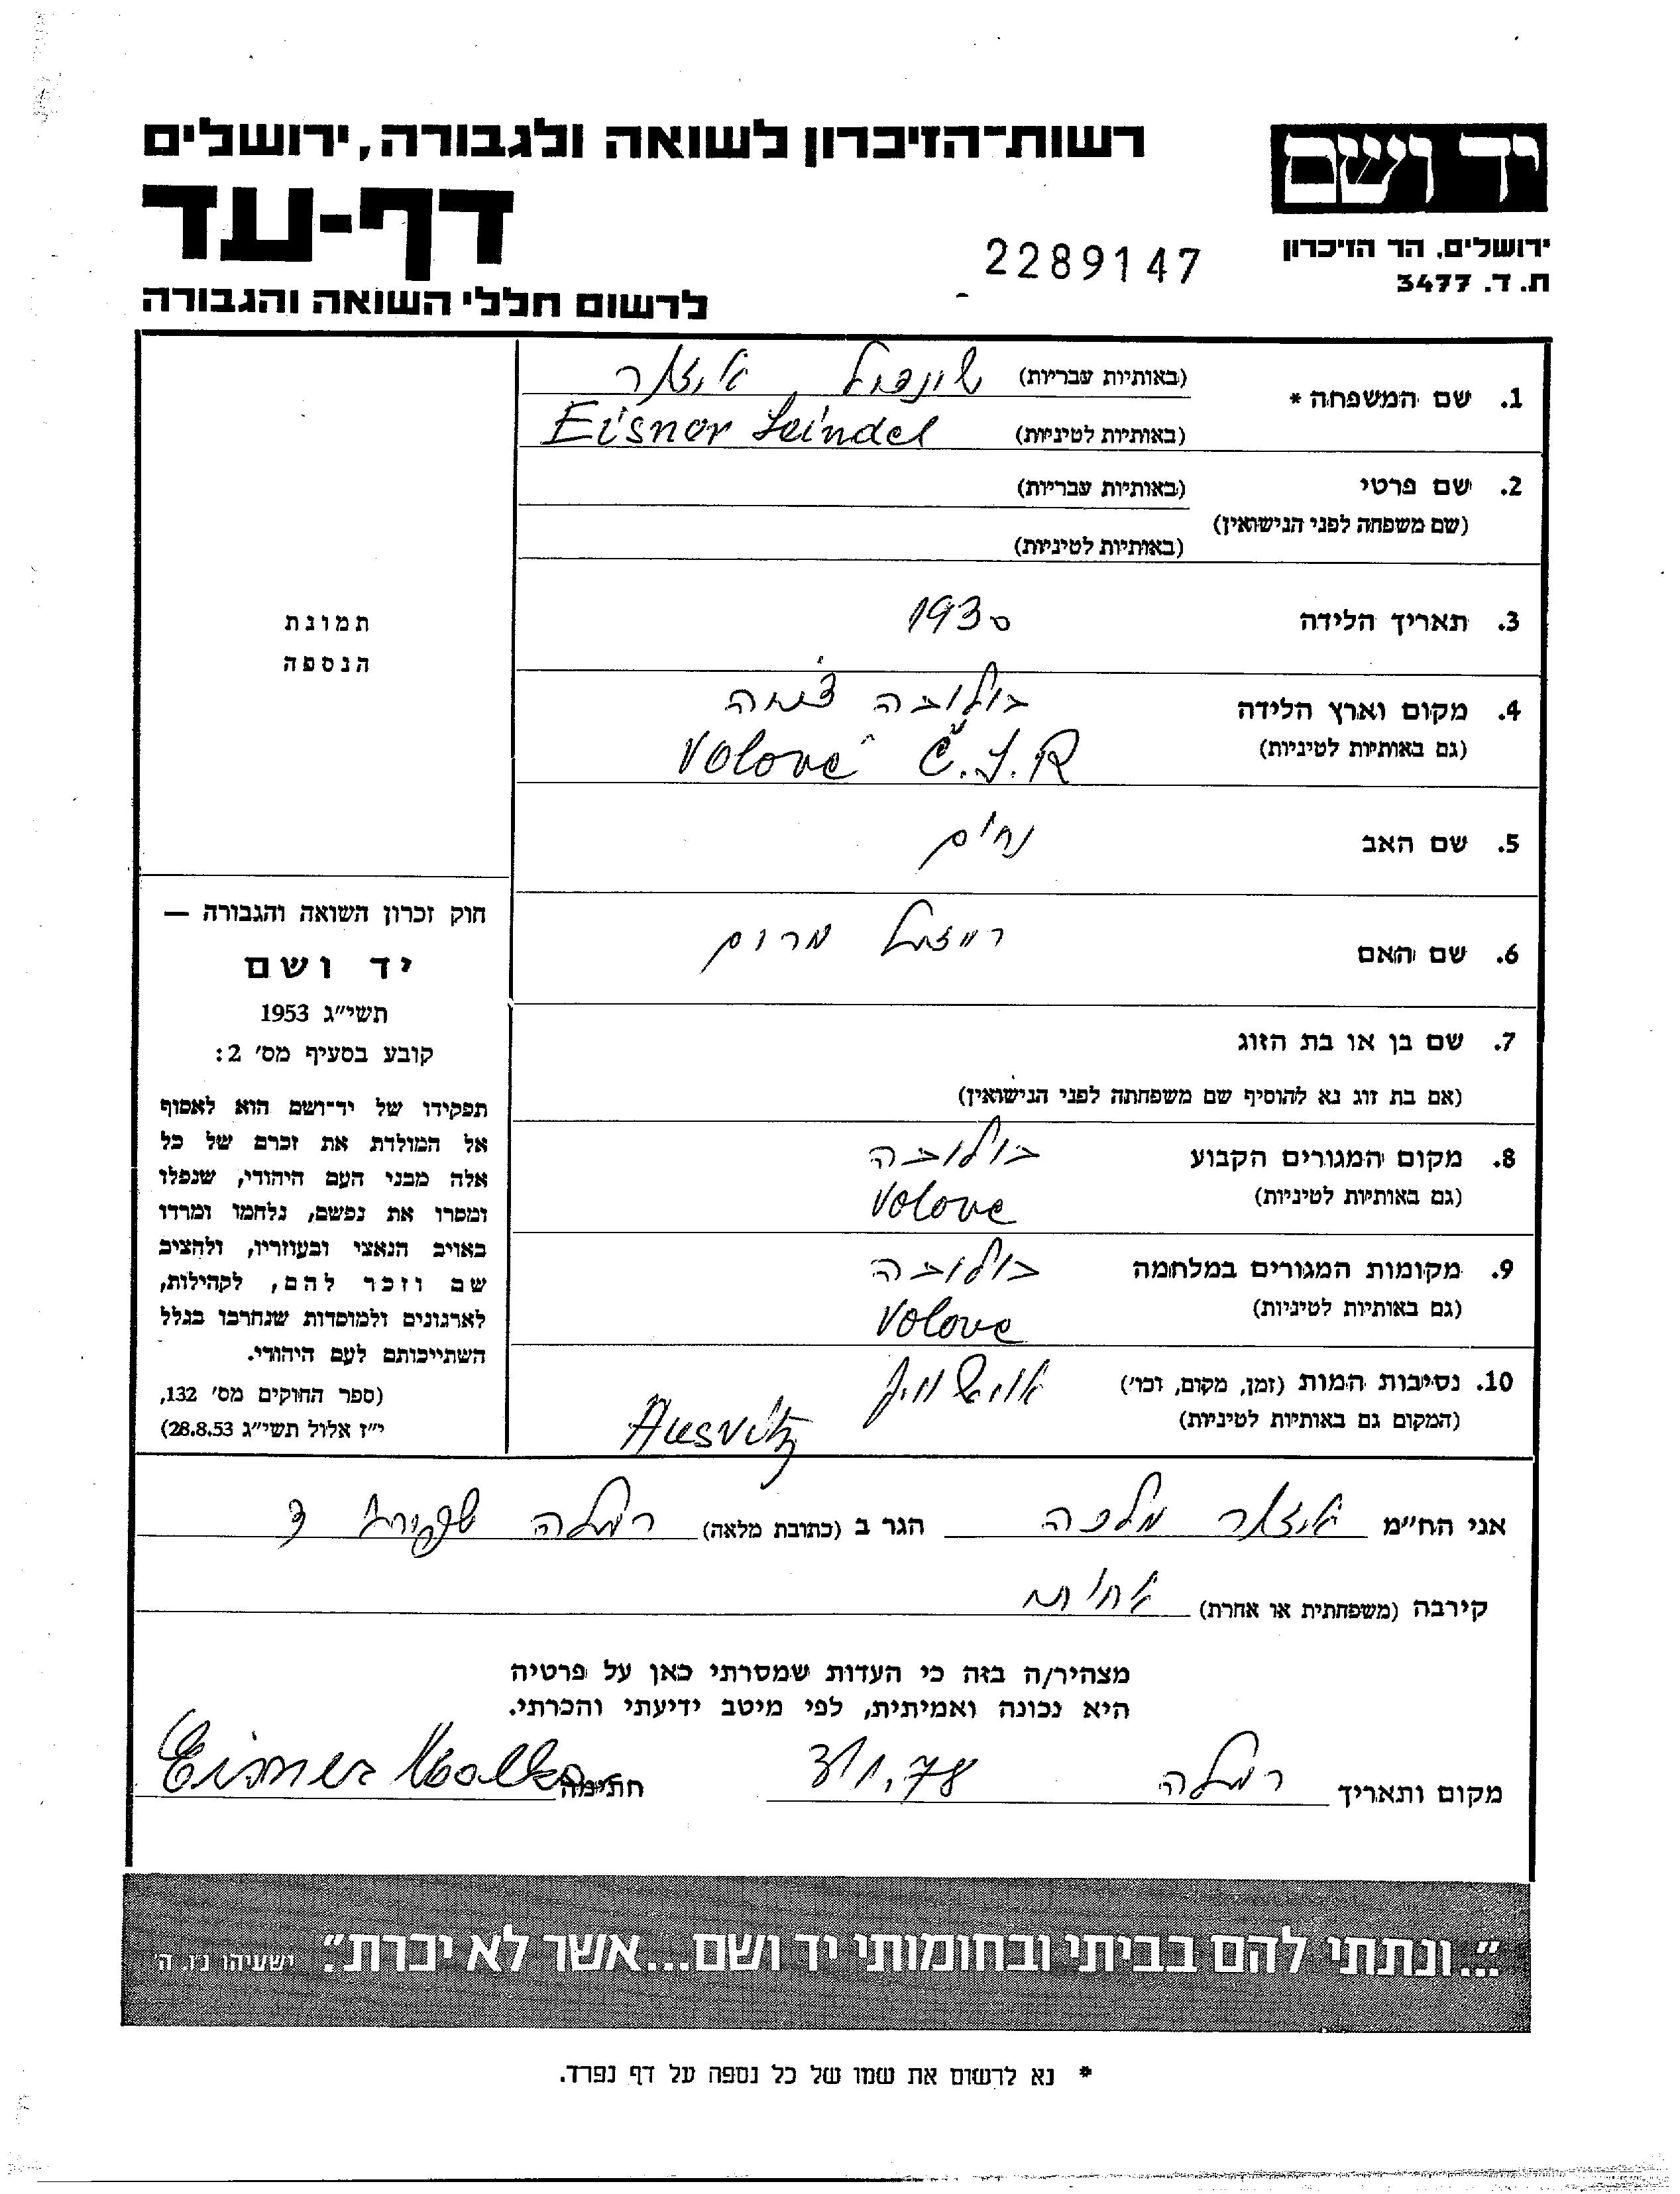 יד ושם
ירושלים, הר הזיכרון
ת.ד. 3477
רשות־הזיכרון לשואה ולגבורה, ירושלים
דף-עד
2289147
לרשום חללי השואה והגבורה
1. שם המשפחה * (באותיות עבריות) שיינדיל אייזנר
(באותיות לטיניות) Eisner Seindel
2. שם פרטי (באותיות עבריות)
(שם משפחה לפני הנישואין)
(באותיות לטיניות)
3. תאריך הלידה 1930
4. מקום וארץ הלידה וולובה
(גם באותיות לטיניות) Volové Č.S.R
5. שם האב נחום
6. שם האם רייזל
7. שם בן או בת הזוג
(אם בת זוג נא להוסיף שם משפחתה לפני הנישואין)
8. מקום המגורים הקבוע וולובה
(גם באותיות לטיניות) Volove
9. מקומות המגורים במלחמה וולובה
(גם באותיות לטיניות) Volove
10. נסיבות המות (זמן, מקום, וכו') אושוויץ
(המקום גם באותיות לטיניות) Ausvitz
תמונת
הנספה
חוק זכרון השואה והגבורה —
יד ושם
תשי"ג 1953
קובע בסעיף מס' 2:
תפקידו של יד־ושם הוא לאסוף
אל המולדת את זכרם של כל
אלה מבני העם היהודי, שנפלו
ומסרו את נפשם, נלחמו ומרדו
באויב הנאצי ובעוזריו, ולהציב
שם וזכר להם, לקהילות,
לארגונים ולמוסדות שנחרבו בגלל
השתייכותם לעם היהודי.
(ספר החוקים מס' 132,
י"ז אלול תשי"ג 28.8.53)
אני הח"מ אייזנר מלכה הגר ב (כתובת מלאה) רמלה
קירבה (משפחתית או אחרת) אחות
מצהיר/ה בזה כי העדות שמסרתי כאן על פרטיה
היא נכונה ואמיתית, לפי מיטב ידיעתי והכרתי.
מקום ותאריך רמלה 31/1.78 חתימה Eisner Malka
"...ונתתי להם בביתי ובחומותי יד ושם...אשר לא יכרת". ישעיהו נ"ו. ה'
* נא לרשום את שמו של כל נספה על דף נפרד.